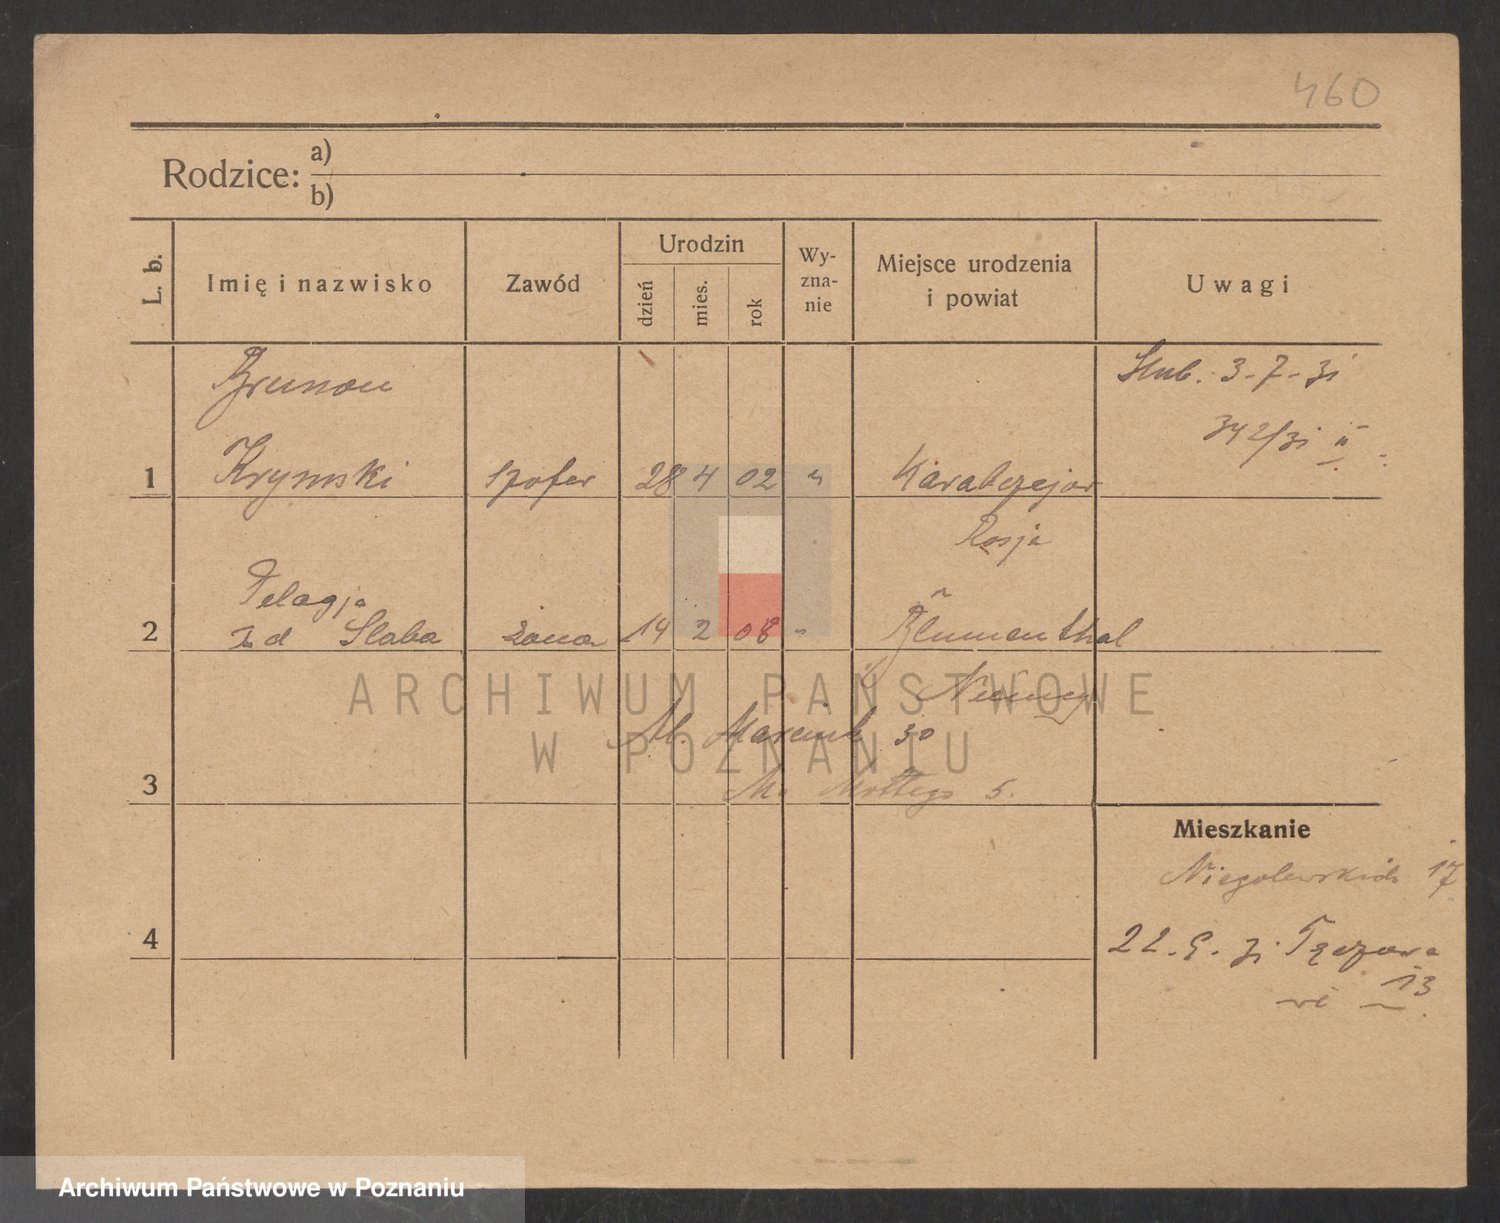 460
Rodzice: a)
b)
L. b.
Imię i nazwisko
Zawód
Urodzin
dzień
mies.
rok
Wy-
zna-
nie
Miejsce urodzenia
i powiat
Uwagi
Brunon
Ślub. 3-7-31
342/31 II
1 Krymski szofer 28 4 02 " Karabczejow
Rosja
Pelagja
2 z d Slaba żona 14 2 08 " Blumenthal
Niemcy
ARCHIWUM PAŃSTWOWE
W POZNANIU
Marcink 30
Mottego 5.
3
Mieszkanie
Niegolewskich 17
4
22.9.31 Tęczowa
13
Archiwum Państwowe w Poznaniu